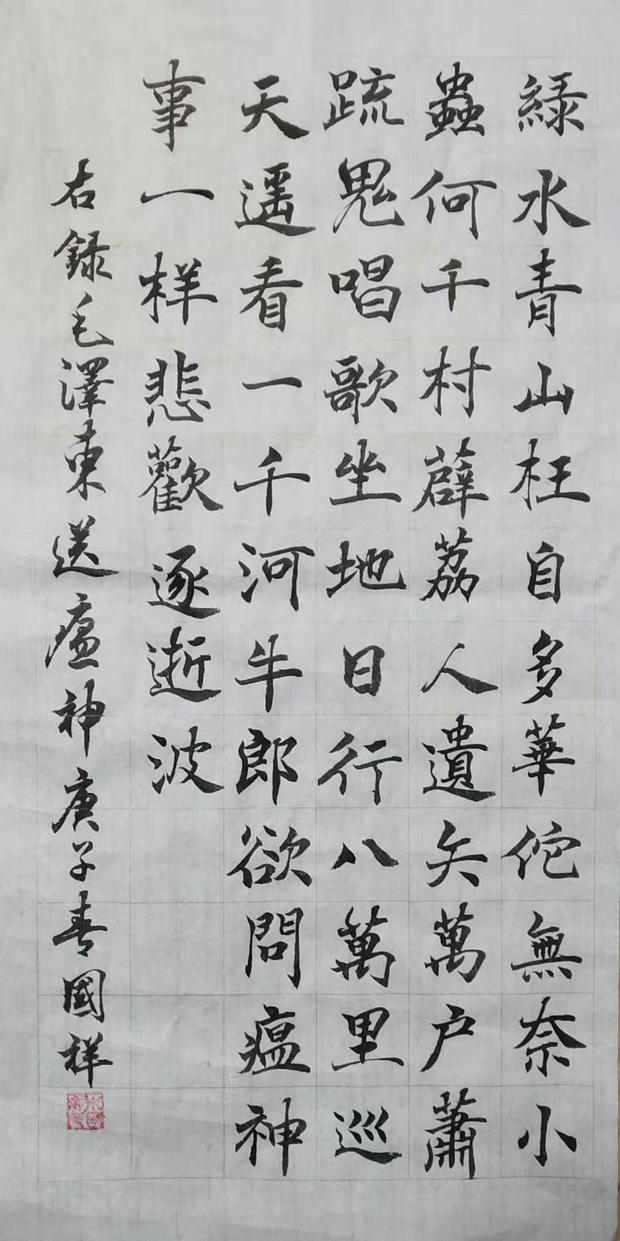 緑水青山枉自多華佗無奈小
蟲何千村薜荔人遺矢萬户蕭
疏鬼唱歌坐地日行八萬里巡
天遥看一千河牛郎欲問瘟神
事一样悲歡逐逝波
右録毛澤東送瘟神庚子春國祥